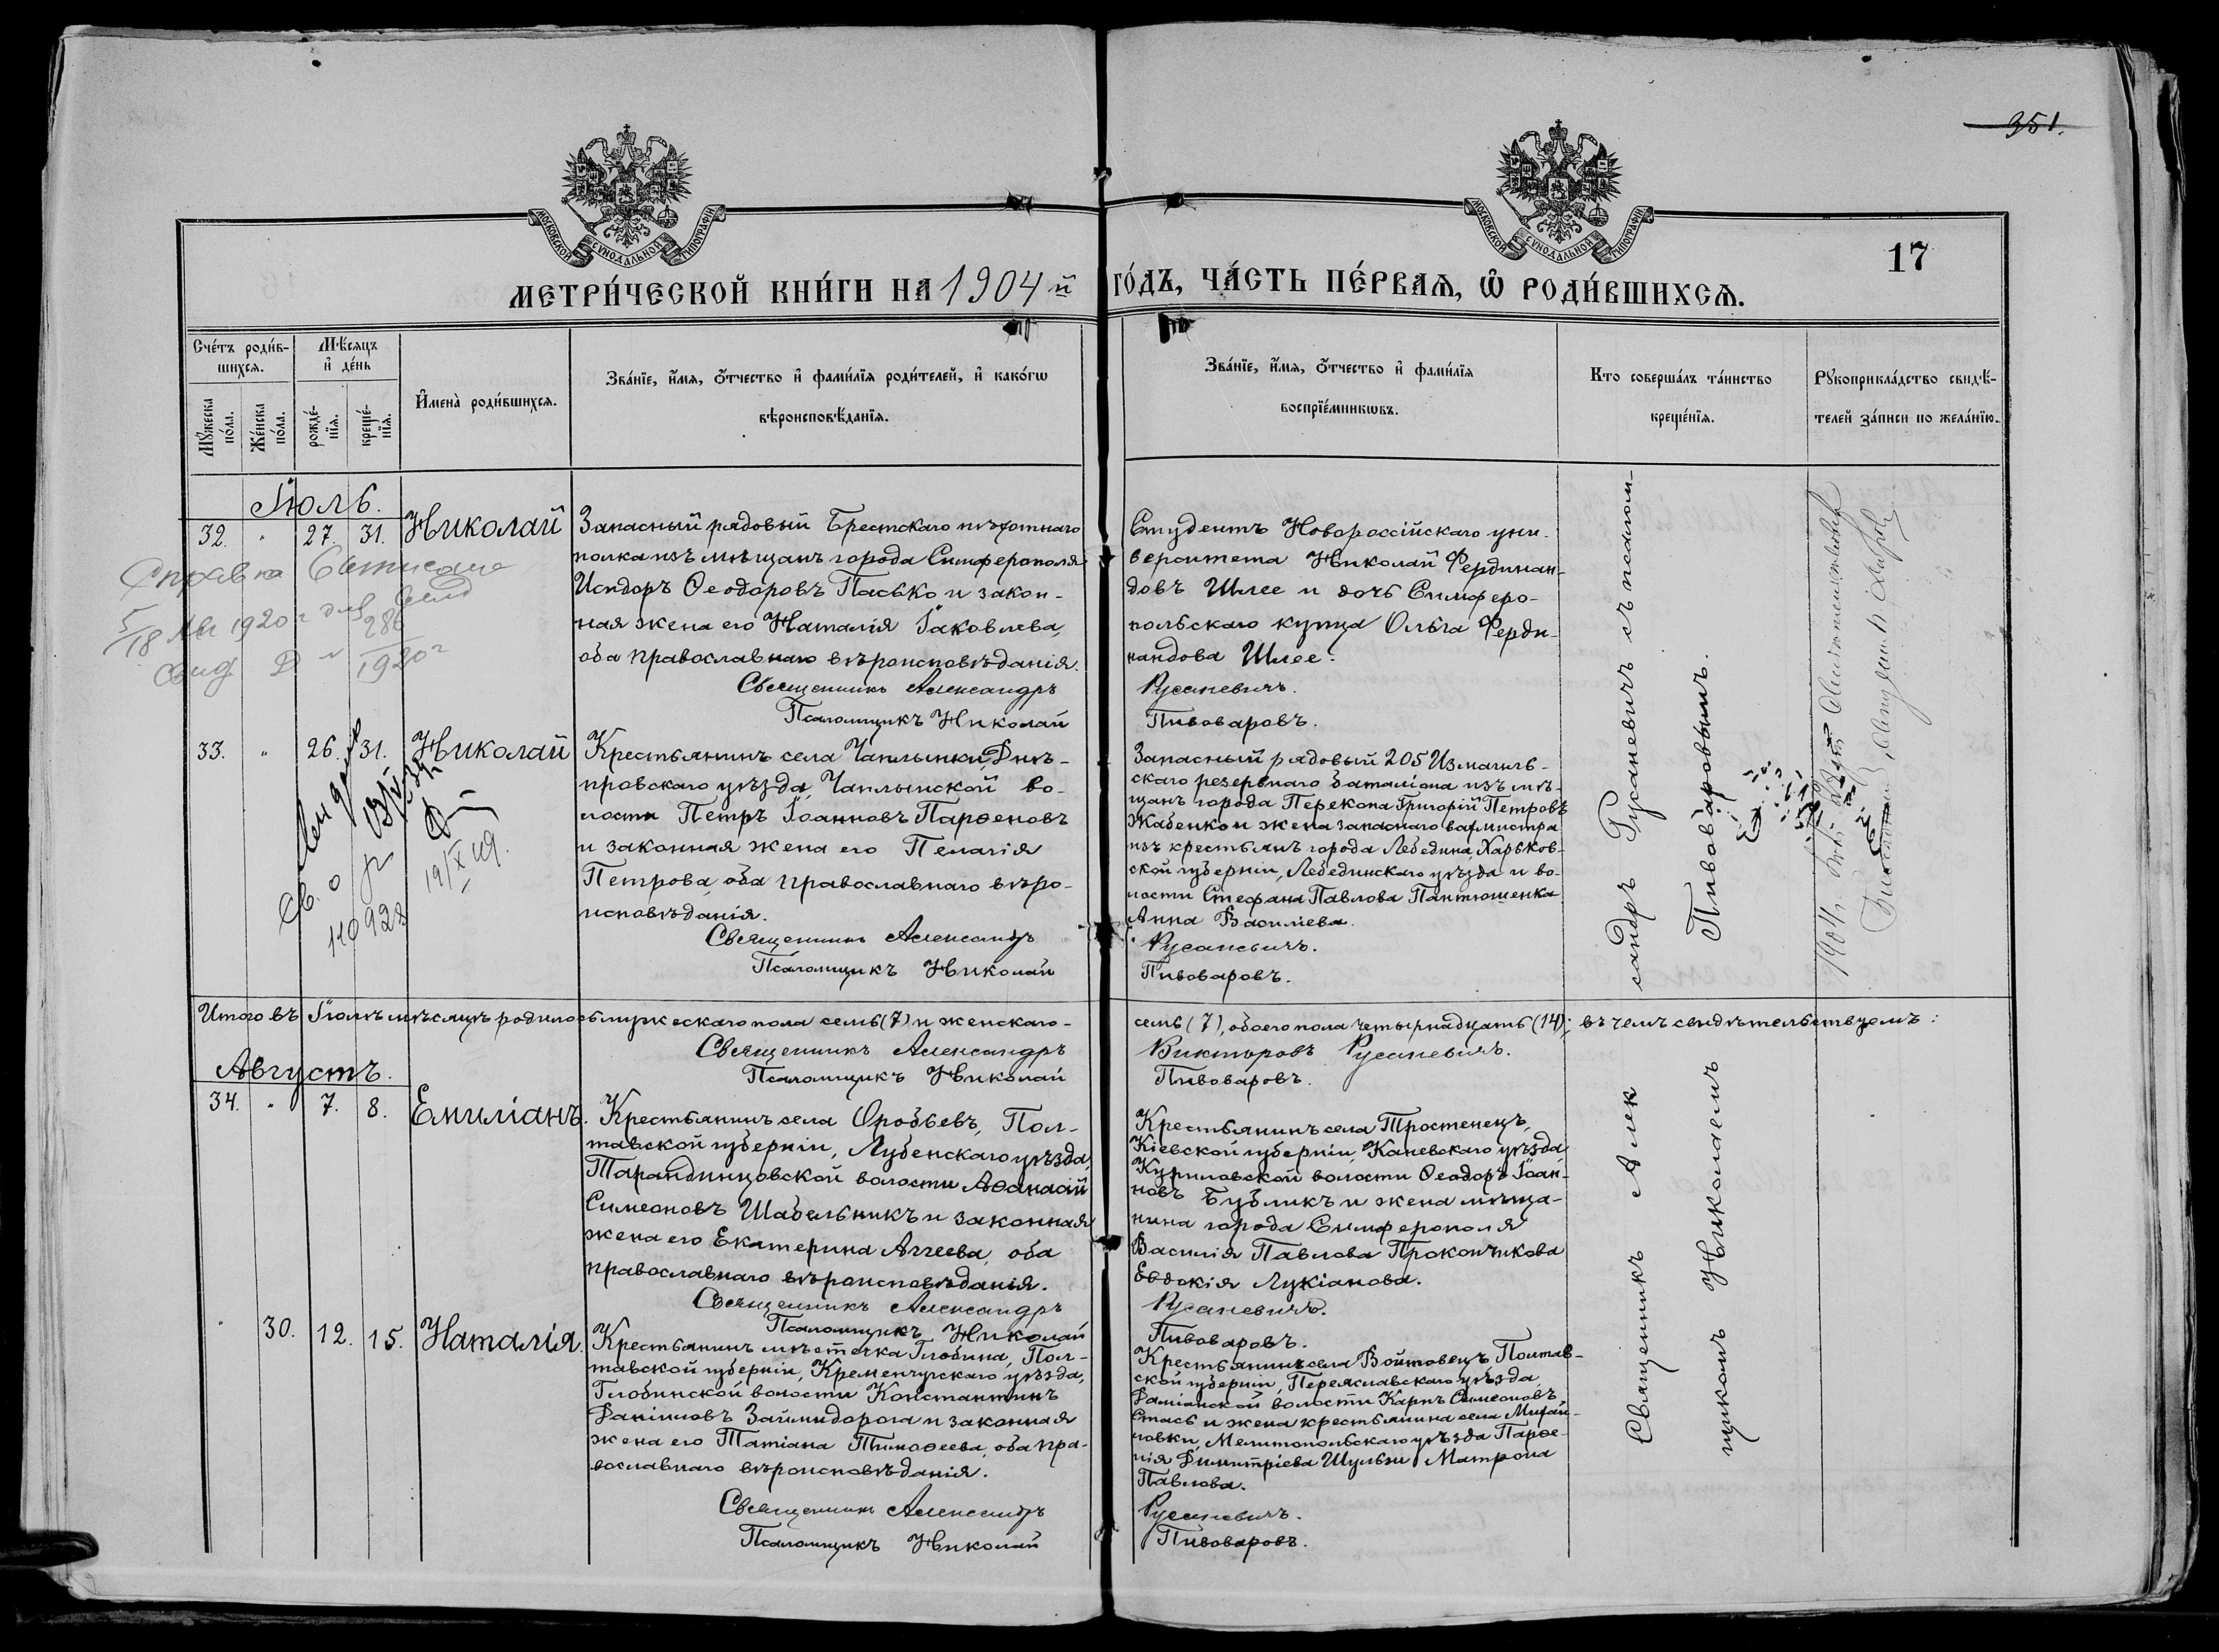 351.
МОСКОВСКОЙ СѴНОДАЛЬНОЙ ТИПОГРАФІИ
МОСКОВСКОЙ СѴНОДАЛЬНОЙ ТИПОГРАФІИ
17
МЕТРИ́ЧЕСКОЙ КНИ́ГИ НА 1904 й ГО́ДЪ, ЧА́СТЬ ПЕ́РВАЯ, Ѽ РОДИ́ВШИХСЯ.
Сче́тъ роди́в-
шихся.
Мꙋ́жеска по́ла.
Же́нска по́ла.
Мѣ́сяцъ
и҆ де́нь
рожде́-
нїя.
креще́-
нїя.
И҆мена̀ роди́вшихся.
Зва́нїе, и҆́мя, ѻ҆́тчество и҆ фами́лїя роди́телей, и҆ како́гѡ
вѣроисповѣ́данїя.
Зва́нїе, и҆́мя, ѻ҆́тчество и҆ фами́лїя
воспрїе́мникѡвъ.
Кто соверша́лъ та́инство
креще́нїя.
Рꙋкоприкла́дство свидѣ́-
телей за́писи по жела́нїю.
Іюль.
32. " 27. 31. Николай
Запасный рядовый Брестскаго пѣхотнаго
полка изъ мѣщанъ города Симферополя
Исидоръ Ѳеодоровъ Пасько и закон-
ная жена его Наталія Іаковлева,
оба православнаго вѣроисповѣданія.
Священникъ Александръ
Псаломщикъ Николай
Студентъ Новороссійскаго уни-
верситета Николай Фердинан-
довъ Шлее и дочь Симферо-
польскаго купца Ольга Ферди-
нандова Шлее.
Русаневичъ.
Пивоваровъ.
Справка
18 1920 г
286
1920 г
33. " 26. 31. Николай
Крестьянинъ села Чаплынки, Днѣ-
провскаго уѣзда, Чаплынской во-
лости Петръ Іоанновъ Парѳеновъ
и законная жена его Пелагія
Петрова, оба православнаго вѣро-
исповѣданія.
Священникъ Александръ
Псаломщикъ Николай
Запасный рядовый 205 Измаиль-
скаго резервнаго баталіона изъ мѣ-
щанъ города Перекопа Григорій Петровъ
Жабенко и жена запаснаго вахмистра
изъ крестьянъ города Лебедина, Харьков-
ской губерніи, Лебединскаго уѣзда и во-
лости Стефана Павлова Пантюшенка
Анна Василіева.
Русаневичъ.
Пивоваровъ.
сандръ Русаневичъ съ псалом-
Пивоваровымъ.
1904 г.
Итого въ Іюлѣ мѣсяцѣ родилось мужескаго пола семь (7) и женскаго-
семь (7), обоего пола четырнадцать (14); въ чемъ свидѣтельствуемъ:
Священникъ Александръ
Псаломщикъ Николай
Викторовъ Русаневичъ.
Пивоваровъ.
Августъ.
34. " 7. 8. Емиліанъ.
Крестьянинъ села Оробьевъ, Пол-
тавской губерніи, Лубенскаго уѣзда,
Тарандинцовской волости Аѳанасій
Симеоновъ Шабельникъ и законная
жена его Екатерина Аггеева, оба
православнаго вѣроисповѣданія.
Священникъ Александръ
Псаломщикъ Николай
Крестьянинъ села Тростенецъ,
Кіевской губерніи, Каневскаго уѣзда
Куриловской волости Ѳеодоръ Іоан-
новъ Бубликъ и жена мѣща-
нина города Симферополя
Василія Павлова Прокопчикова
Евдокія Лукіанова.
Русаневичъ.
Пивоваровъ.
" 30. 12. 15. Наталія.
Крестьянинъ мѣстечка Глобина, Пол-
тавской губерніи, Кременчугскаго уѣзда,
Глобинской волости Константинъ
Даніиловъ Займидорога и законная
жена его Татіана Тимоѳеева, оба пра-
вославнаго вѣроисповѣданія.
Священникъ Александръ
Псаломщикъ Николай
Крестьянинъ села Войтовецъ Полтав-
ской губерніи, Переяславскаго уѣзда,
Даміанской волости Карпъ Симеоновъ
Стась и жена крестьянина села Михай-
ловки, Мелитопольскаго уѣзда Парѳе-
нія Димитріева Шульги Матрона
Павлова.
Русаневичъ.
Пивоваровъ.
Священникъ Алек
щикомъ Николаемъ